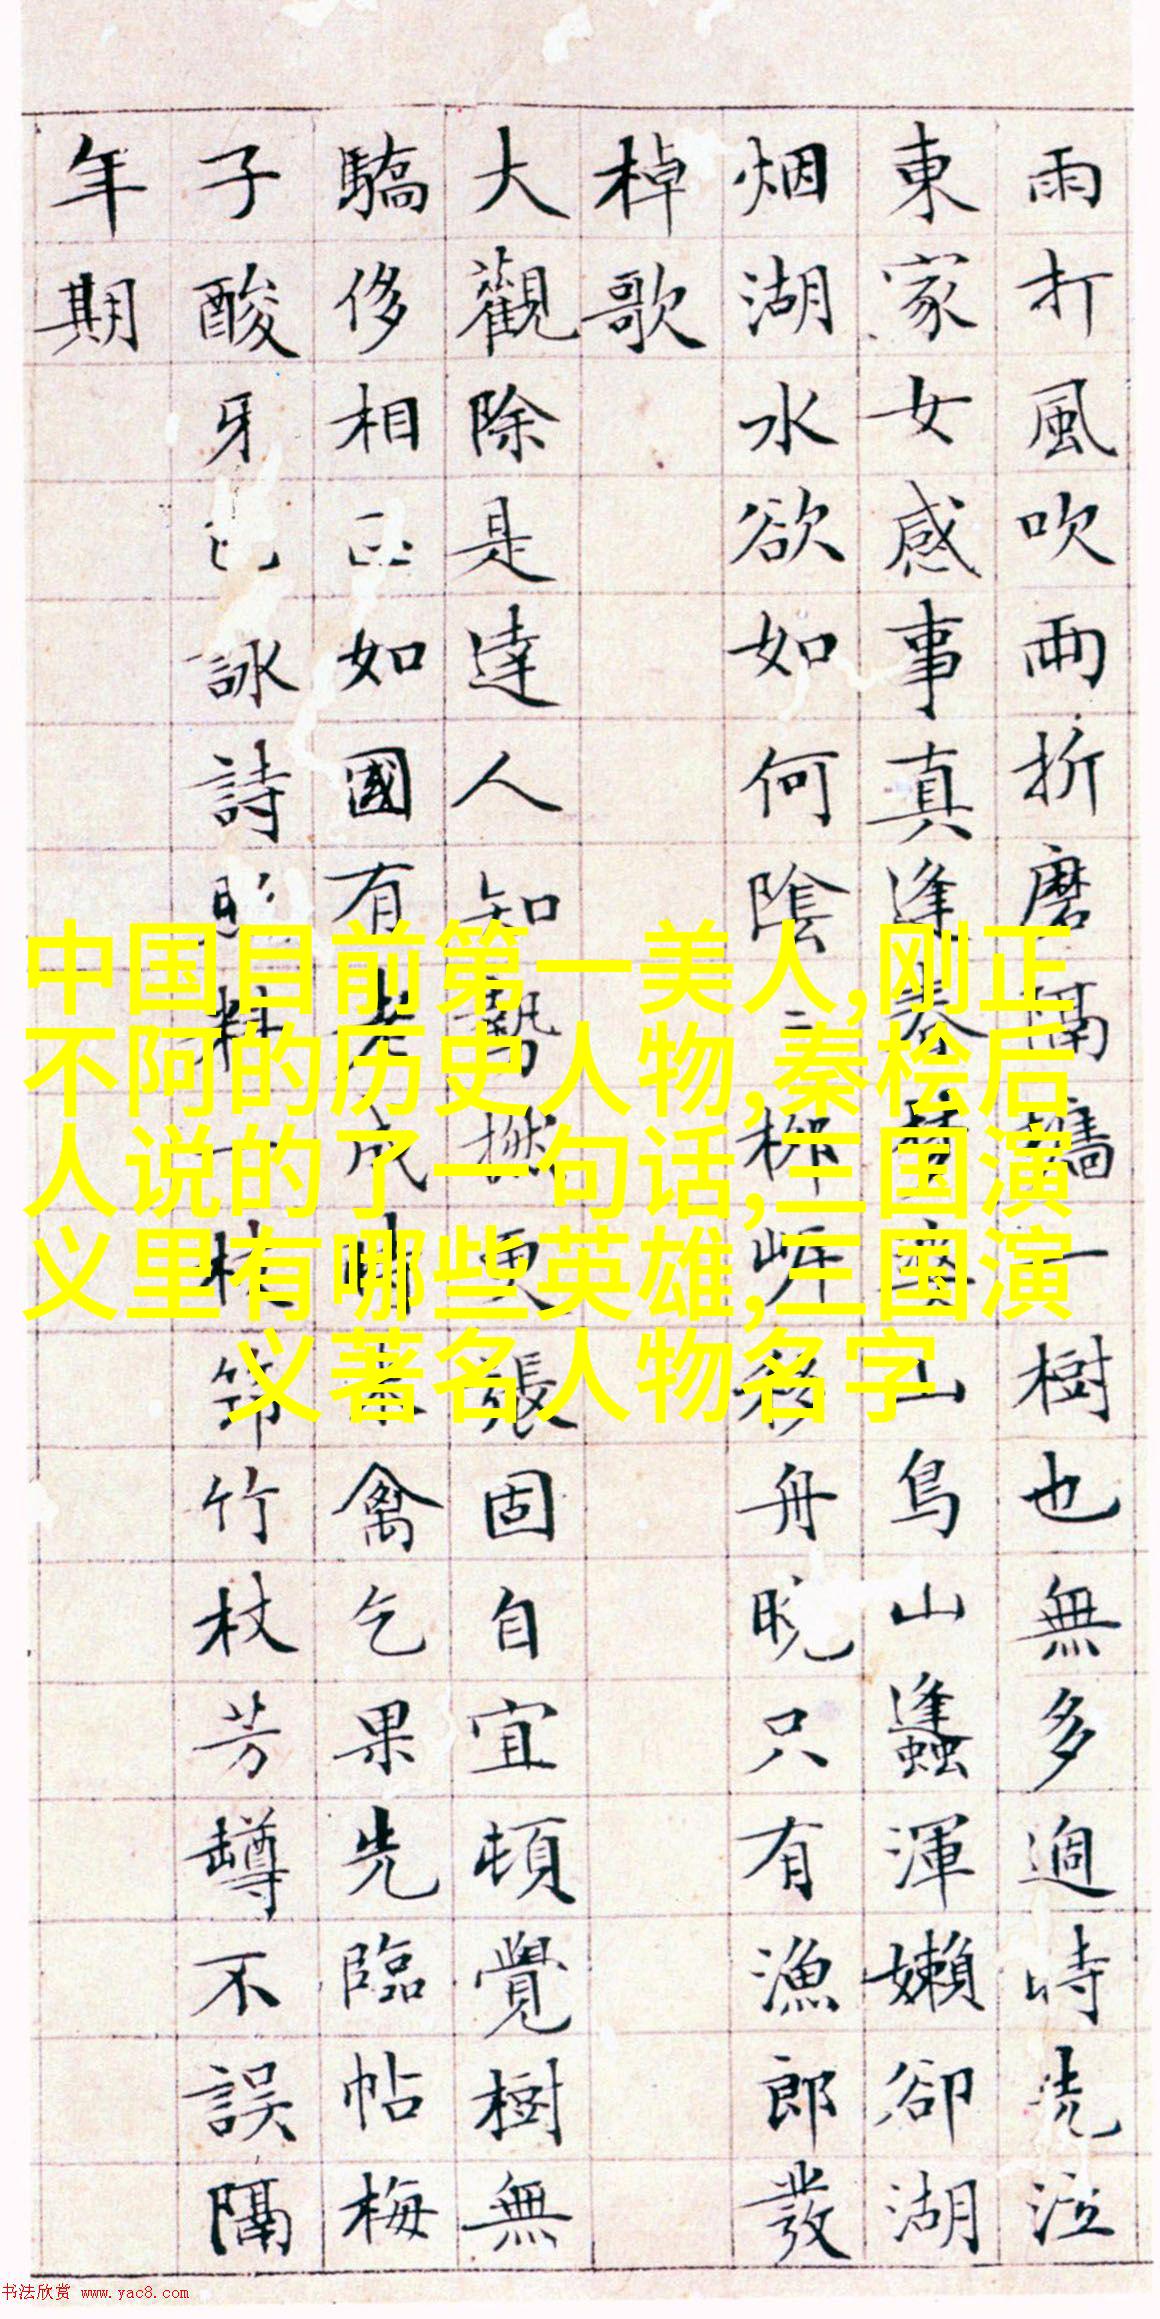 雨打風吹兩折磨隔墻一樹也無多過時洗泣
東家女感事真逢春山鳥山蠭渾嬾卻湖
烟湖水欲如何陰二柳岸移舟晚只有漁郎發
棹歌
大觀除是達人知勢掀更張固自宜頓覺樹無
驕侈相如國有老成禽乞果先臨帖梅
子酸牙詠詩料一枝筇竹杖芳罇不誤隔
年期
中国目前第一美人,刚正
不阿的历史人物,秦桧后
人说的了一句话,三国演
义里有哪些英雄,三国演
义著名人物名字
书法欣赏 www.yac8.com